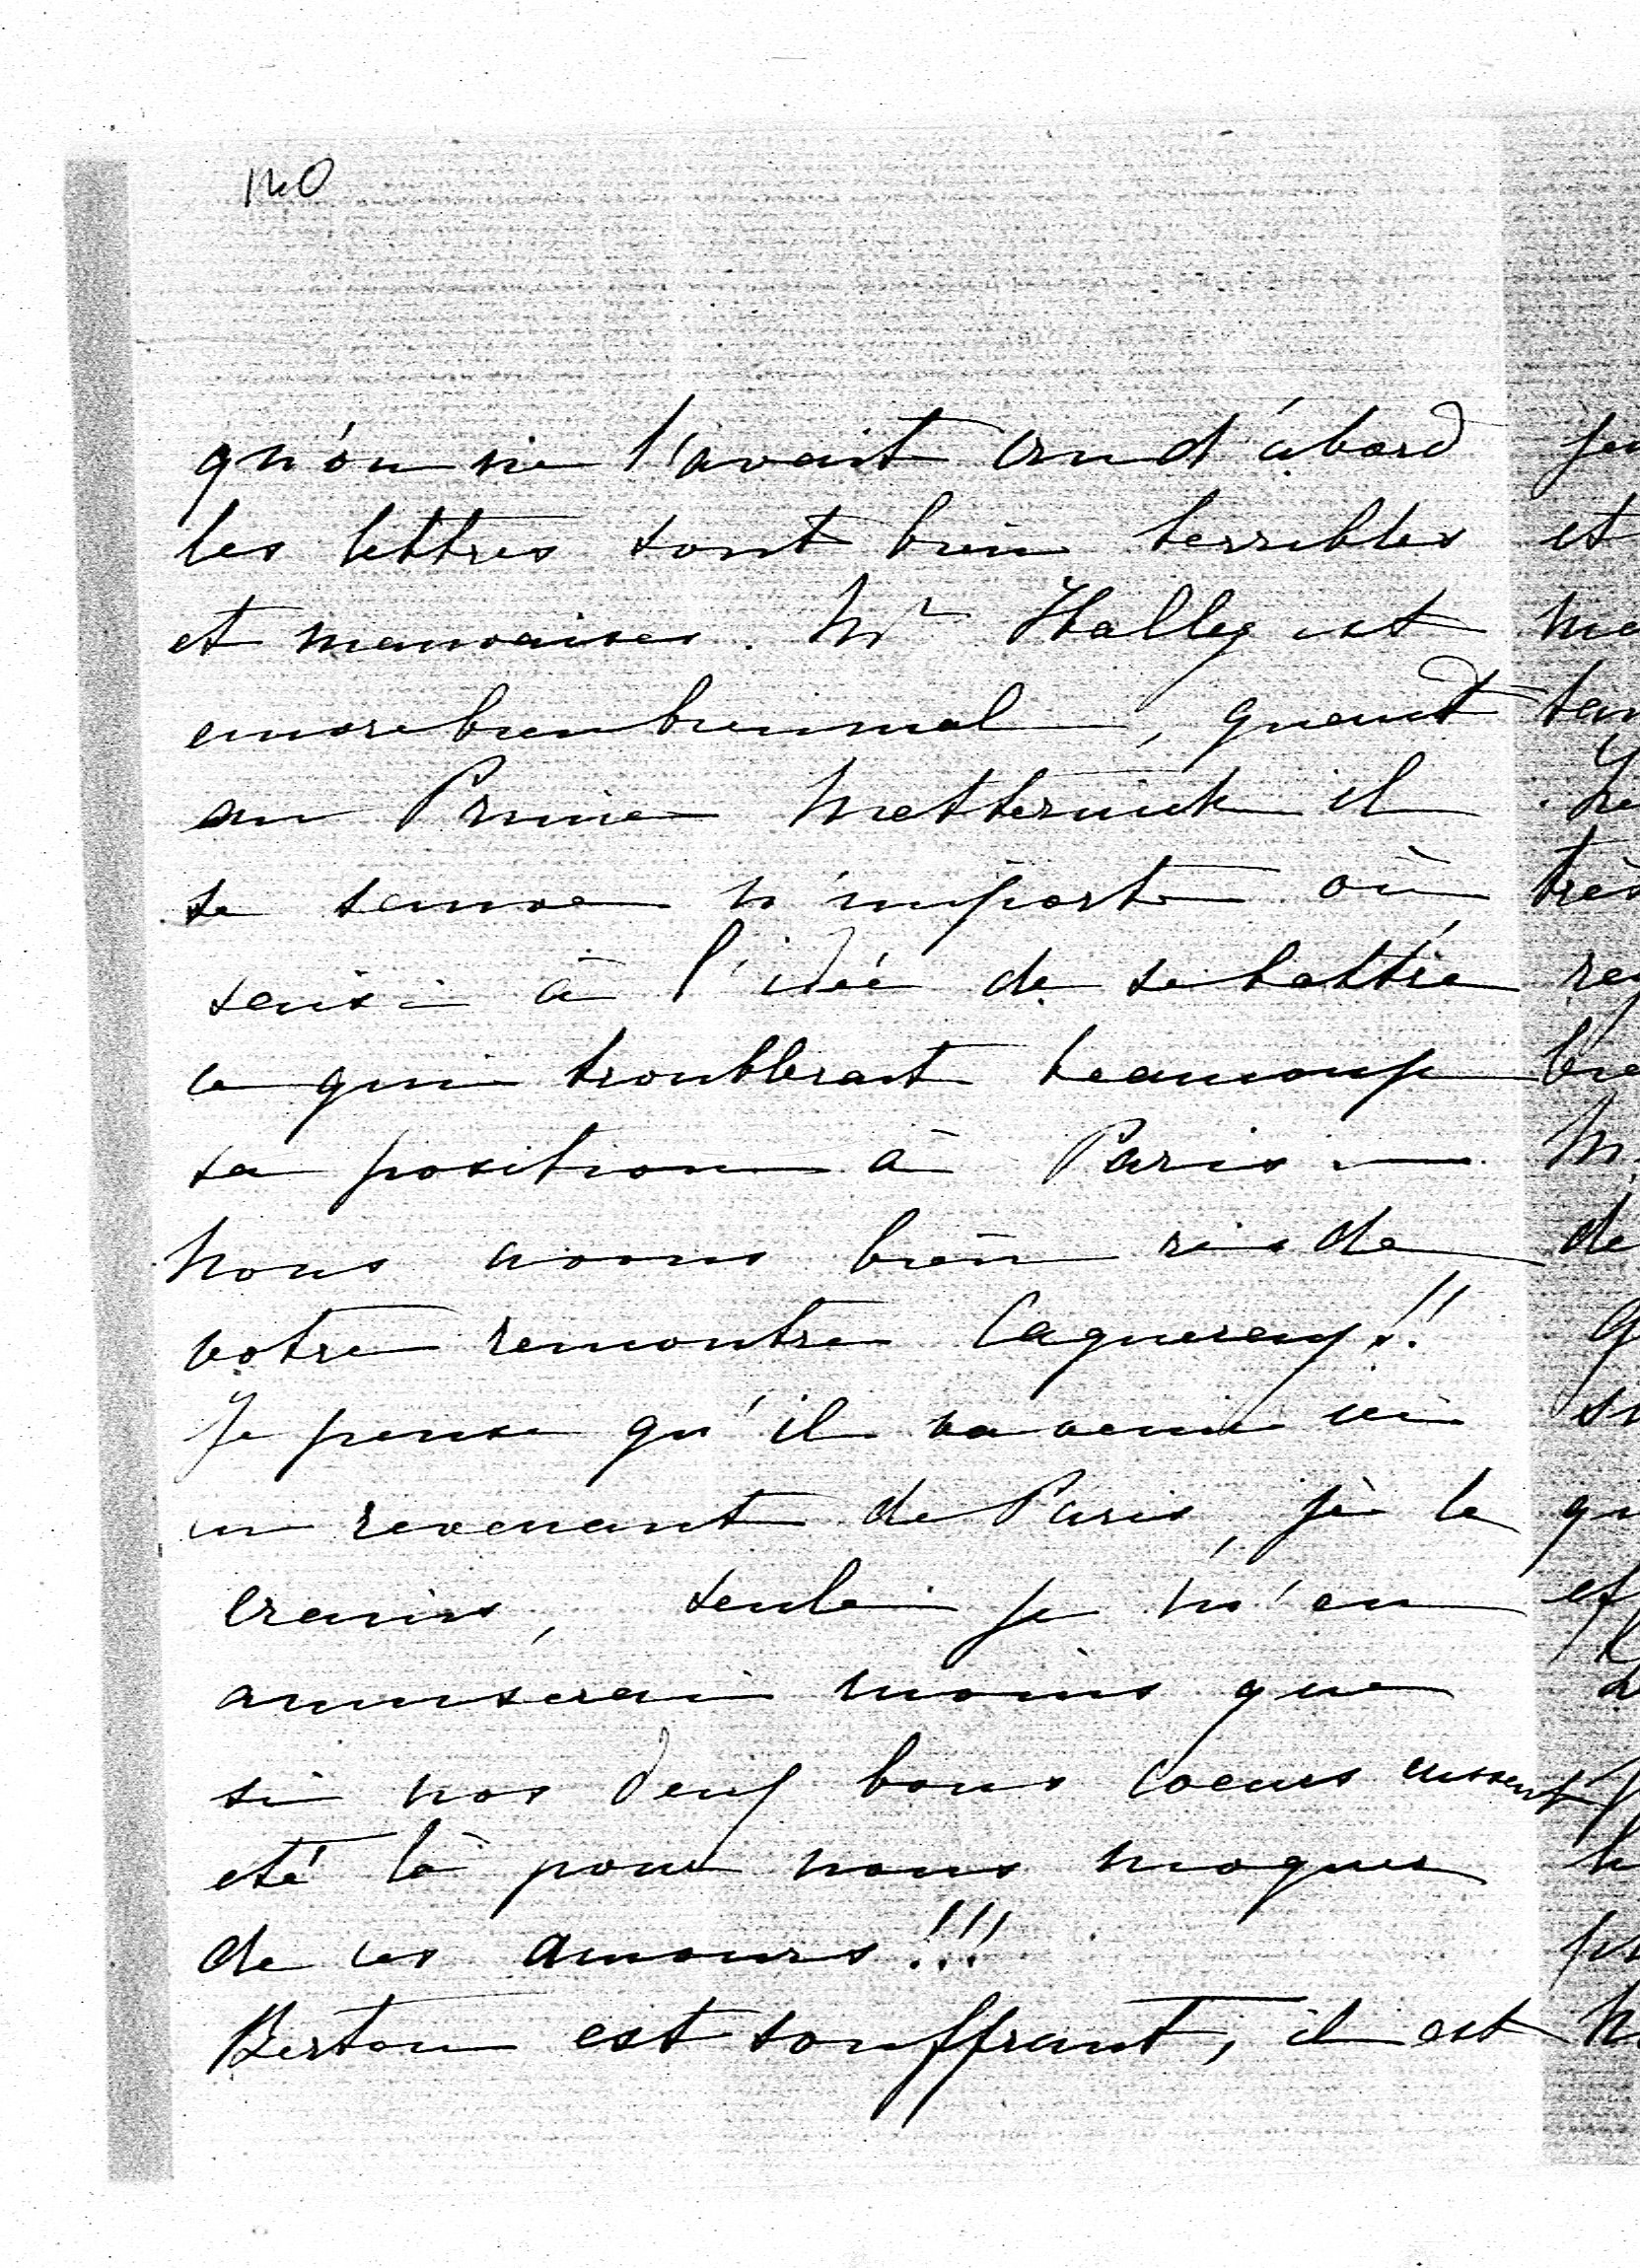 140
qu'on ne l'avait cru d'abord
les lettres sont bien terribles
et mauvaises. Mr Halley est
encore bien bien mal, quand
au Prince Metternich il
se sauve n'importe où
à l'idée de se battre
ce qui troublerait beaucoup
sa position à Paris —
Nous avons bien ris de
votre rencontre Caqueray!!
Je pense qu'il va venir ici
en revenant de Paris, je le
crains, seule je m'en
amuserai moins que
si nos deux bons coeurs eussent
eté là pour nous moquer
de ces amours!!!
Berton est souffrant, il est